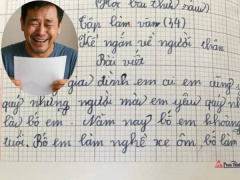 (Học bài thứ sáu)
Tập làm văn (34)
Kể ngắn về người thân
Bài viết
gia đình em ai em cũng
quý nhưng người mà em yêu quý nh
là bố em. Năm nay bố em khoảng
tuổi. Bố em làm nghề xe ôm bố làm